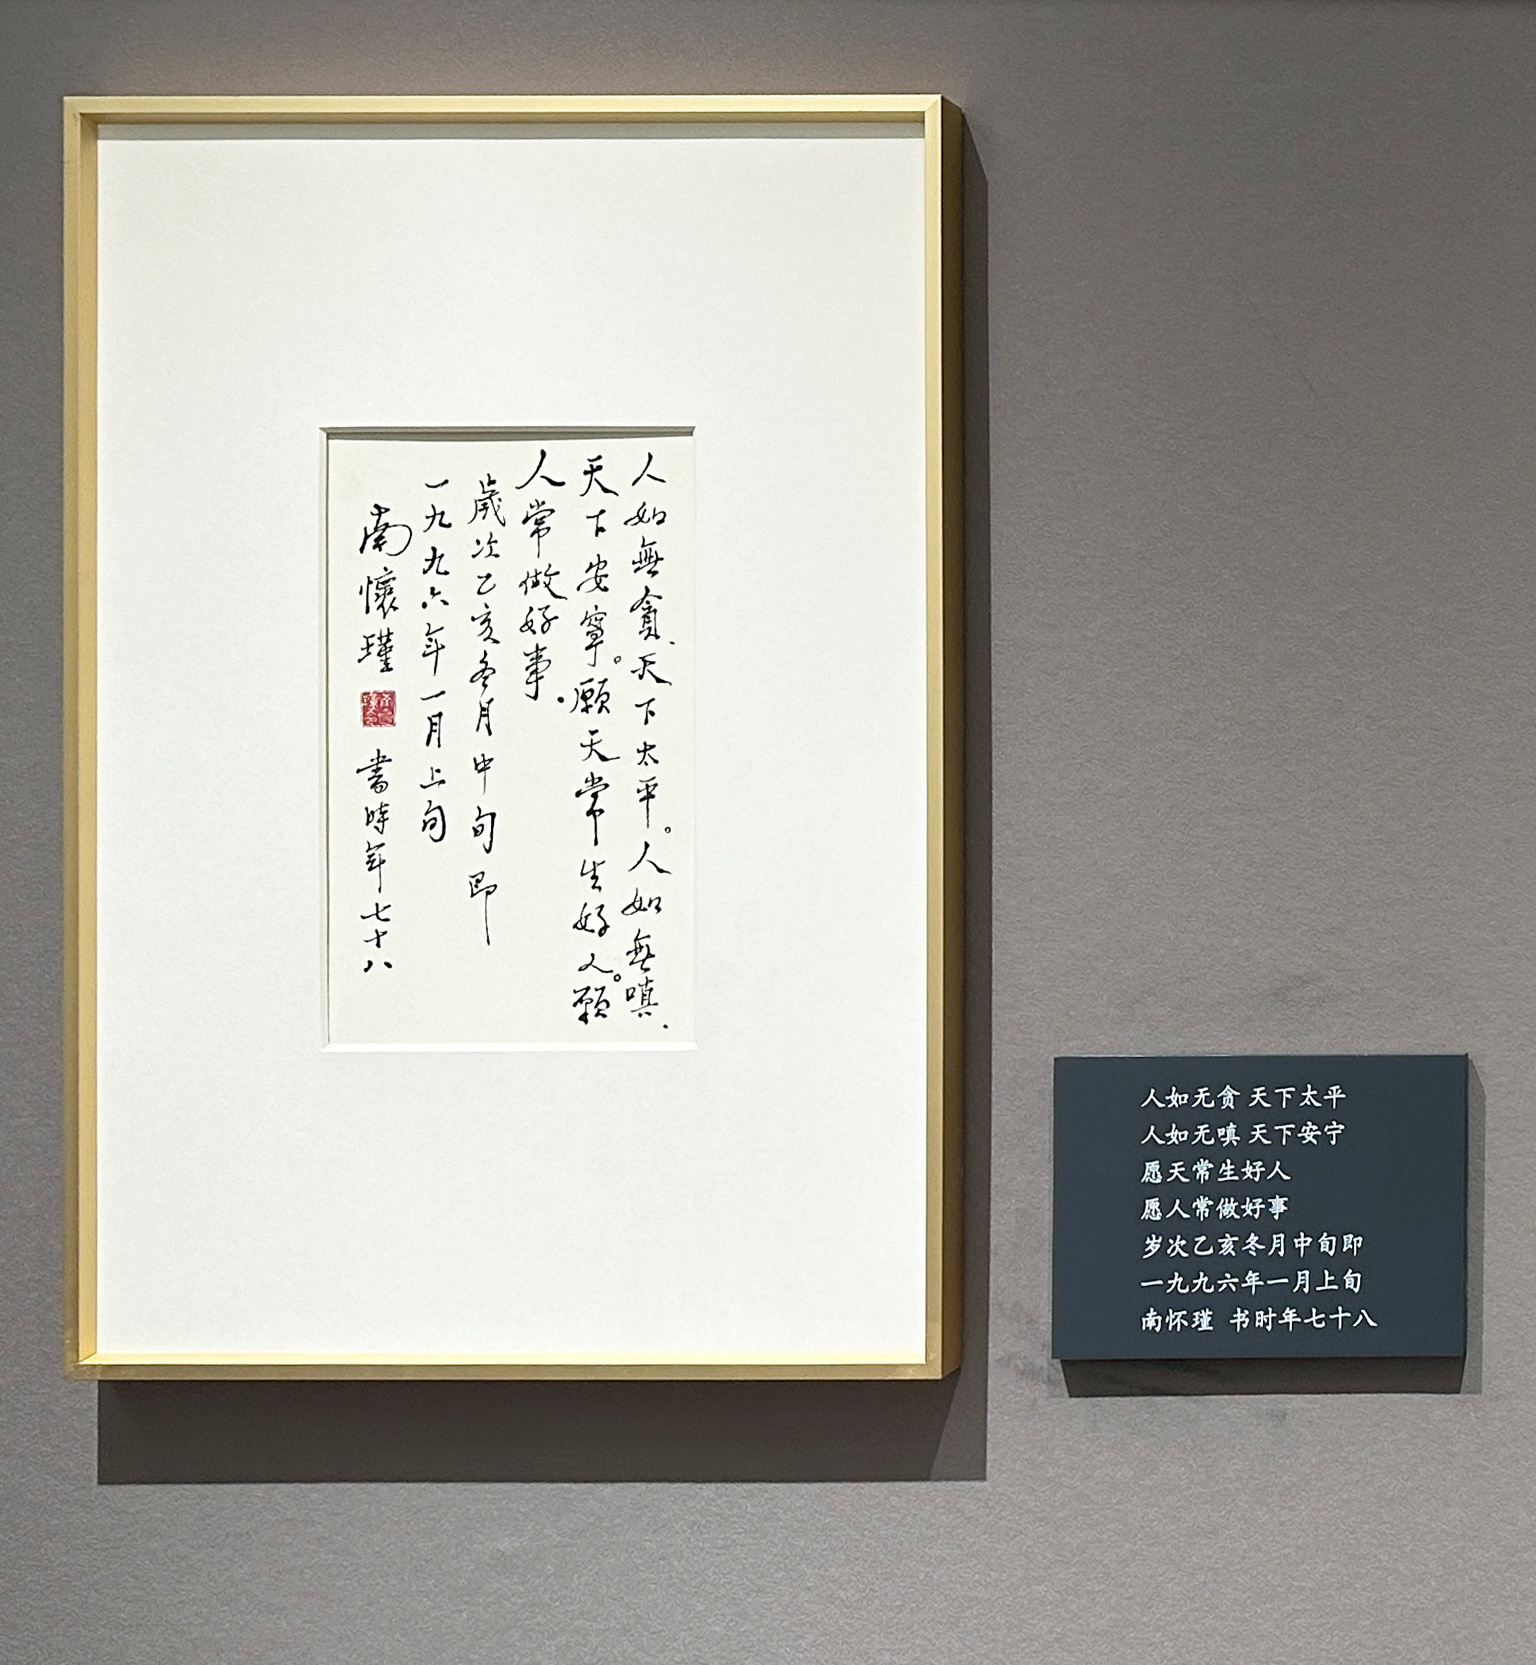 人如無貪、天下太平。人如無嗔、
天下安寧。願天常生好人。願
人常做好事。
歲次乙亥冬月中旬即
一九九六年一月上旬
南懷瑾 書時年七十八
人如无贪 天下太平
人如无嗔 天下安宁
愿天常生好人
愿人常做好事
岁次乙亥冬月中旬即
一九九六年一月上旬
南怀瑾 书时年七十八